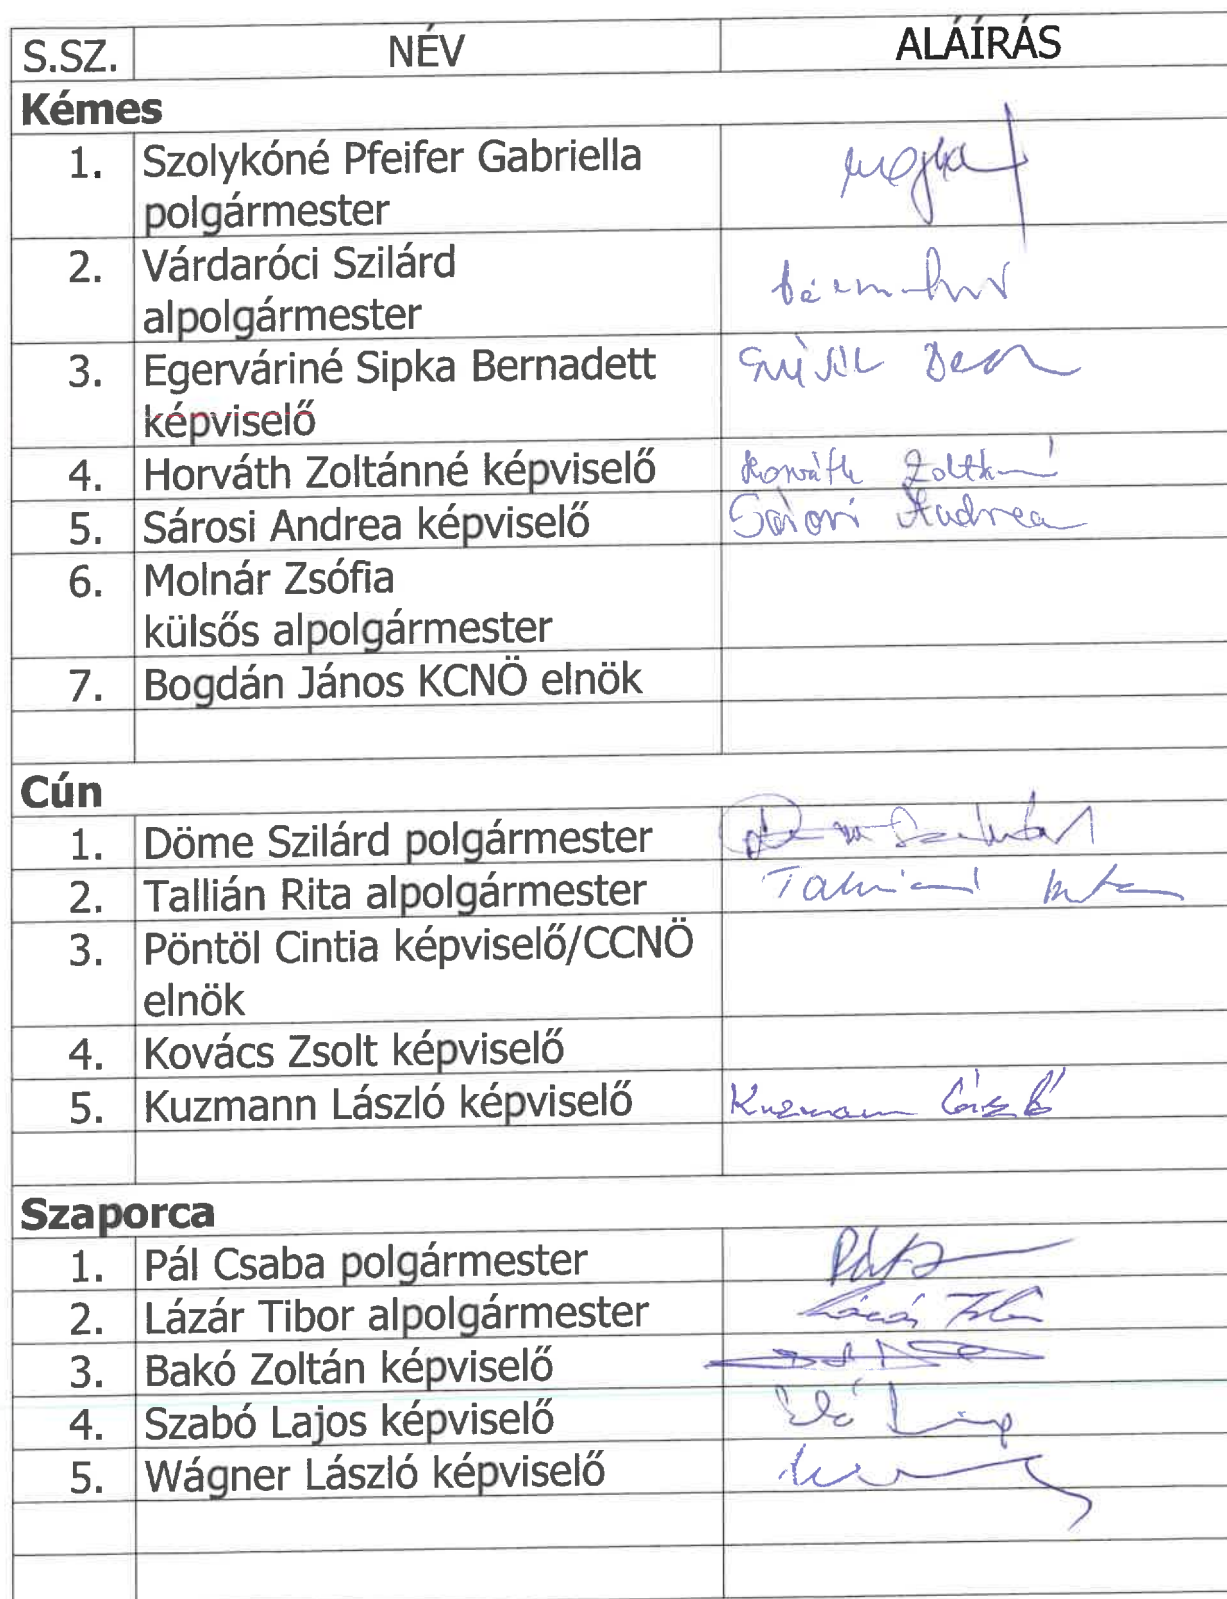 S.SZ. NÉV ALÁÍRÁS
Kémes
1. Szolykóné Pfeifer Gabriella
polgármester
2. Várdaróci Szilárd
alpolgármester
3. Egerváriné Sipka Bernadett
képviselő
4. Horváth Zoltánné képviselő Horváth Zoltánné
5. Sárosi Andrea képviselő Sárosi Andrea
6. Molnár Zsófia
külsős alpolgármester
7. Bogdán János KCNÖ elnök
Cún
1. Döme Szilárd polgármester
2. Tallián Rita alpolgármester
3. Pöntöl Cintia képviselő/CCNÖ
elnök
4. Kovács Zsolt képviselő
5. Kuzmann László képviselő Kuzmann László
Szaporca
1. Pál Csaba polgármester
2. Lázár Tibor alpolgármester
3. Bakó Zoltán képviselő
4. Szabó Lajos képviselő
5. Wágner László képviselő